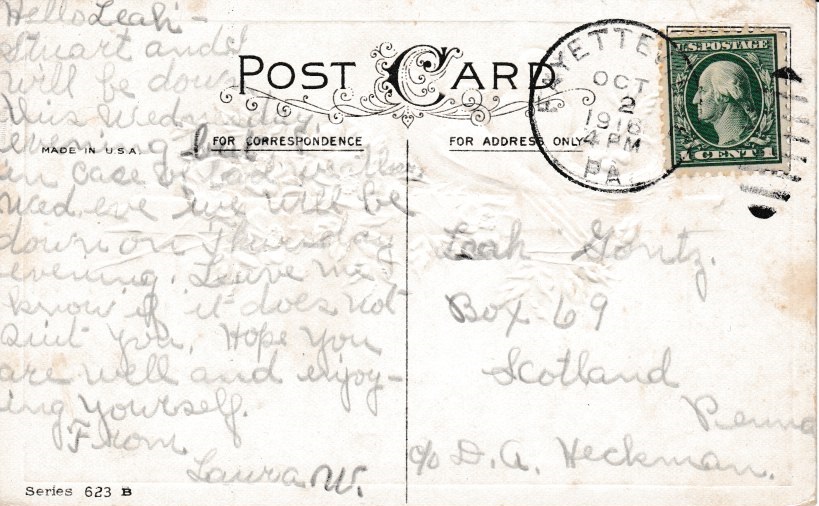 Hello Leah -
Stuart and I
will be down
this Wednesday
evening but
in case of bad weather
Wed. eve we will be
down on Thursday
evening. Leave me
know if it does not
suit you. Hope you
are well and enjoy-
ing yourself.
From
Laura W.
POST CARD
MADE IN U.S.A.
FOR CORRESPONDENCE
FOR ADDRESS ONLY
FAYETTEV
OCT
2
1916
4 PM
PA.
U.S. POSTAGE
1 CENT 1
Leah Gontz.
Box 69
Scotland
Penna
c/o D. A. Heckman.
Series 623 B